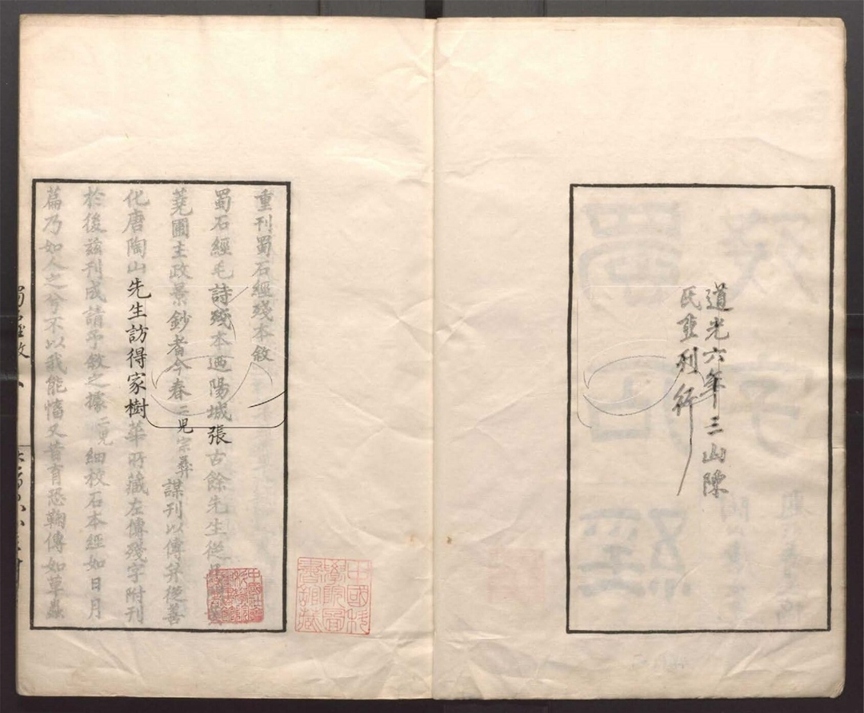 道光六年三山陳
氏重刊行
重刊蜀石經殘本敘
蜀石經毛詩殘本迺陽城張古餘先生從
蕘圃主政景鈔者今春二兒宗彝謀刊以傳并從善
化唐陶山先生訪得家樹華所藏左傳殘字附刊
於後茲刊成請予敘之據二兒細校石本經如日月
篇乃如人之兮不以我能慉又昔育恐鞠傳如草蟲